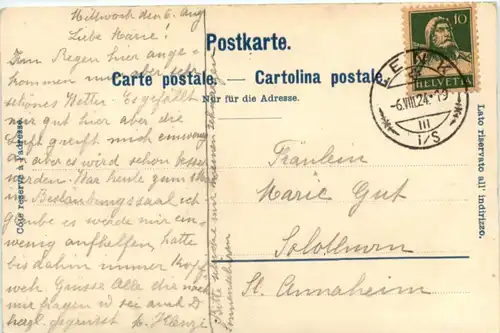 Mittwoch den 6. Aug.
Liebe Marie!
Im Regen hier ange-
kommen nun aber sehr
schönes Wetter. Es gefällt
mir gut hier aber die
Luft greift mich ein wenig
an aber es wird schon besser
werden. War heute zum 1.
in Bestaubungssaal ich
glaube es würde mir ein
wenig aufhelfen, hatte
bis dahin immer Kopf
weh. Grüsse Alle die nach
mir fragen u sei auch D
herzl. gegrüsst v.
Bitte schicke mir meinen
Côté réservé à l'adresse.
Postkarte.
Carte postale. — Cartolina postale.
Nur für die Adresse.
10
HELVETIA
LENK
-6.VIII.24.-19
III
i/S
Lato riservato all' indirizzo.
Fräulein
Marie Gut
Solothurn
St. Annaheim